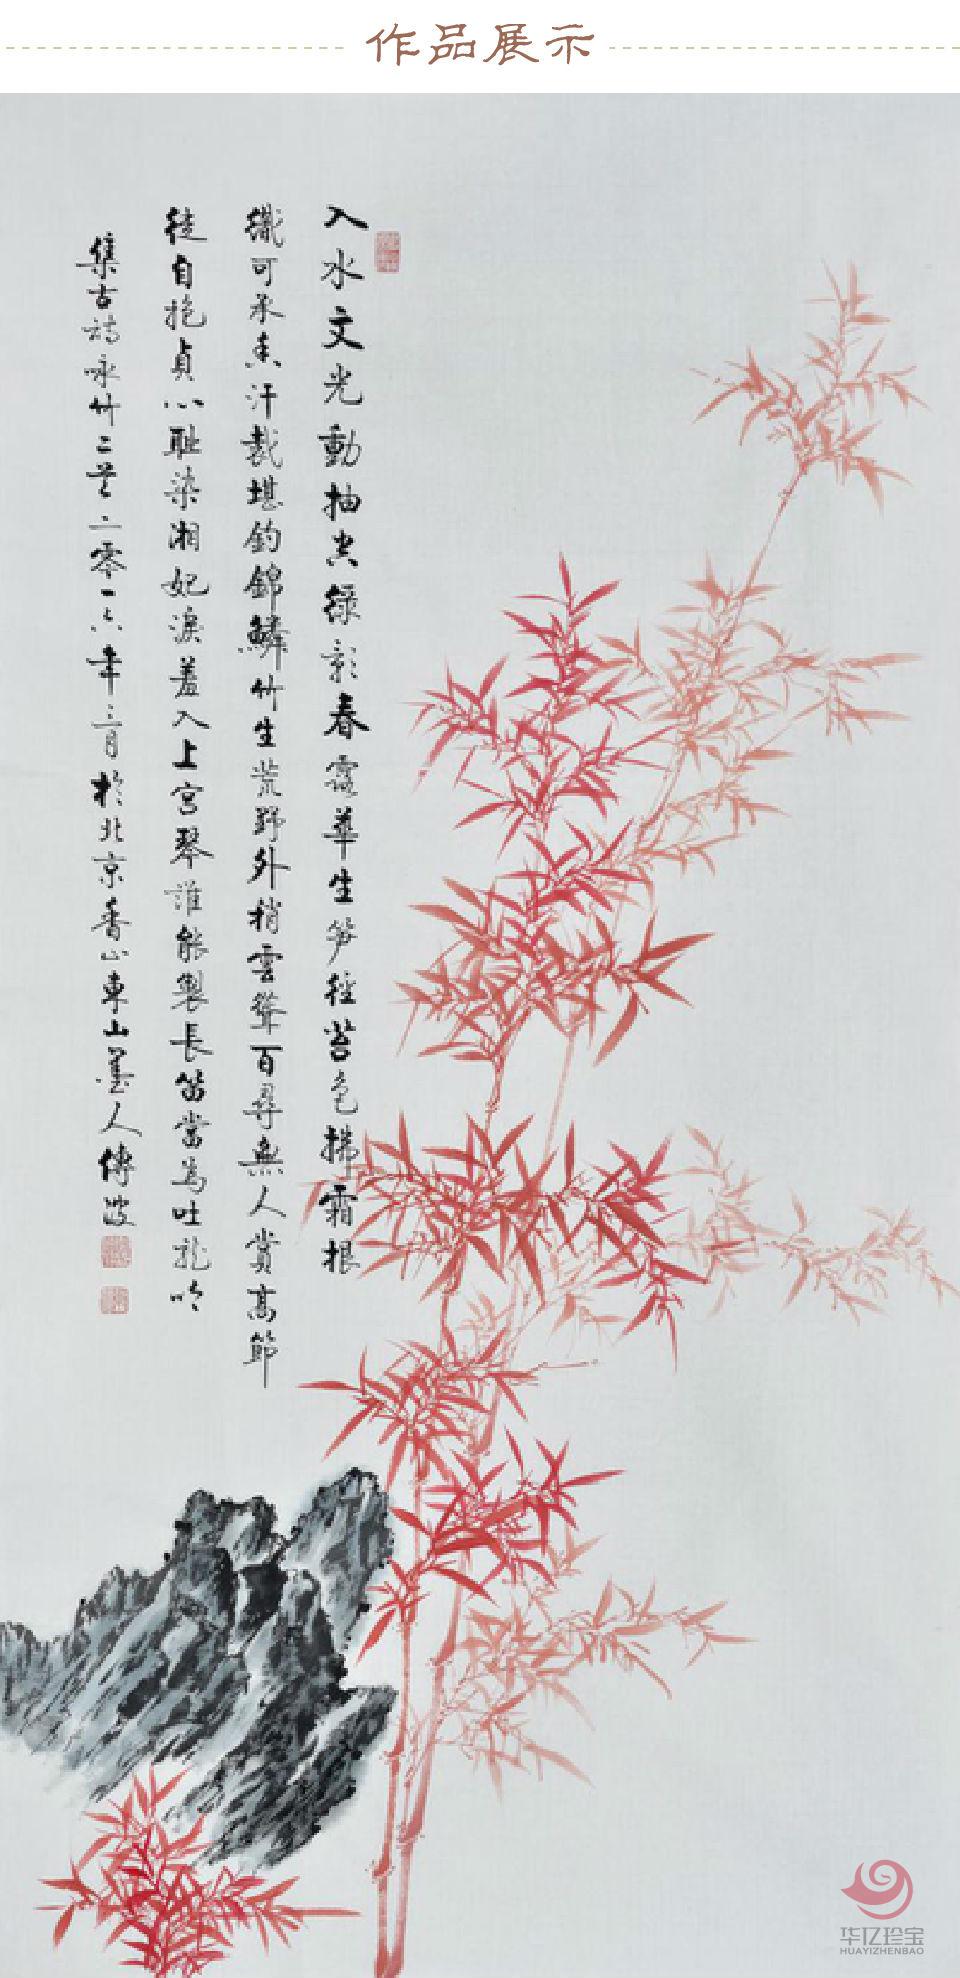 作品展示
入水文光動抽空綠影春露華生笋徑苔色拂霜根
織可承香汗裁堪釣錦鱗竹生荒野外梢雲聳百尋無人賞高節
徒自抱貞心恥染湘妃淚羞入上宮琴誰能製長笛當為吐龍吟
集古詩咏竹二首二零一六年三月於北京香山東山墨人傅波
华亿珍宝
HUAYIZHENBAO